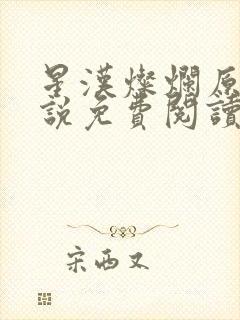 星漢燦爛原
說免費閱讀
宋西又